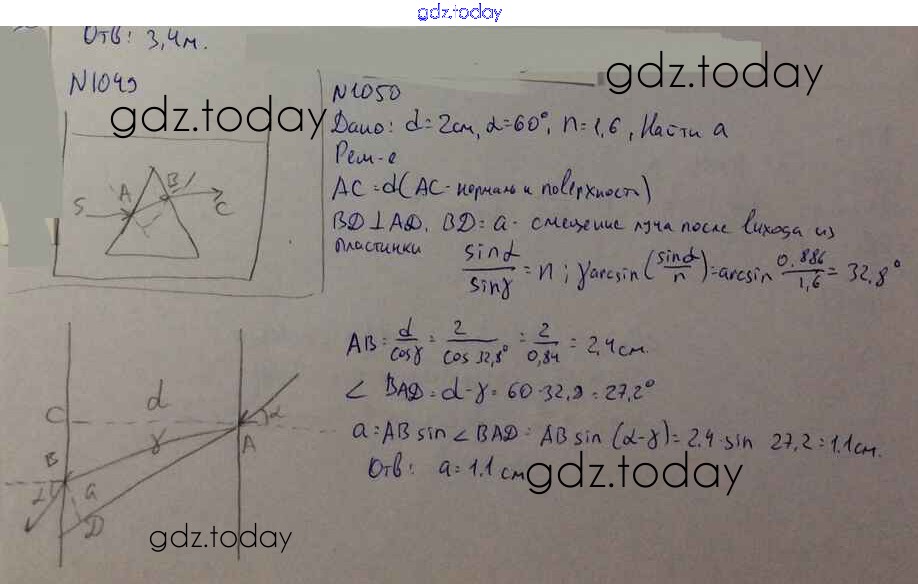 gdz.today
Отв: 3,4м.
gdz.today
N1049
N1050
gdz.today
Дано: d=2см, α=60°, n=1,6, Найти a
Реш-е
AC=d(AC-нормаль к поверхности)
BD⊥AD. BD=a- смещение луча после выхода из
пластинки
sinα/sinγ = n; γ arcsin(sinα/n)=arcsin 0.886/1,6 = 32,8°
S A B C
AB = d/cosγ = 2/cos 32,8° = 2/0,84 = 2,4см.
∠ BAD=α-γ=60-32,8=27,2°
a=AB sin ∠BAD= AB sin (α-γ)=2.4·sin 27,2=1.1см.
Отв: a=1.1 см
gdz.today
C d α
γ A
B
a
D
gdz.today